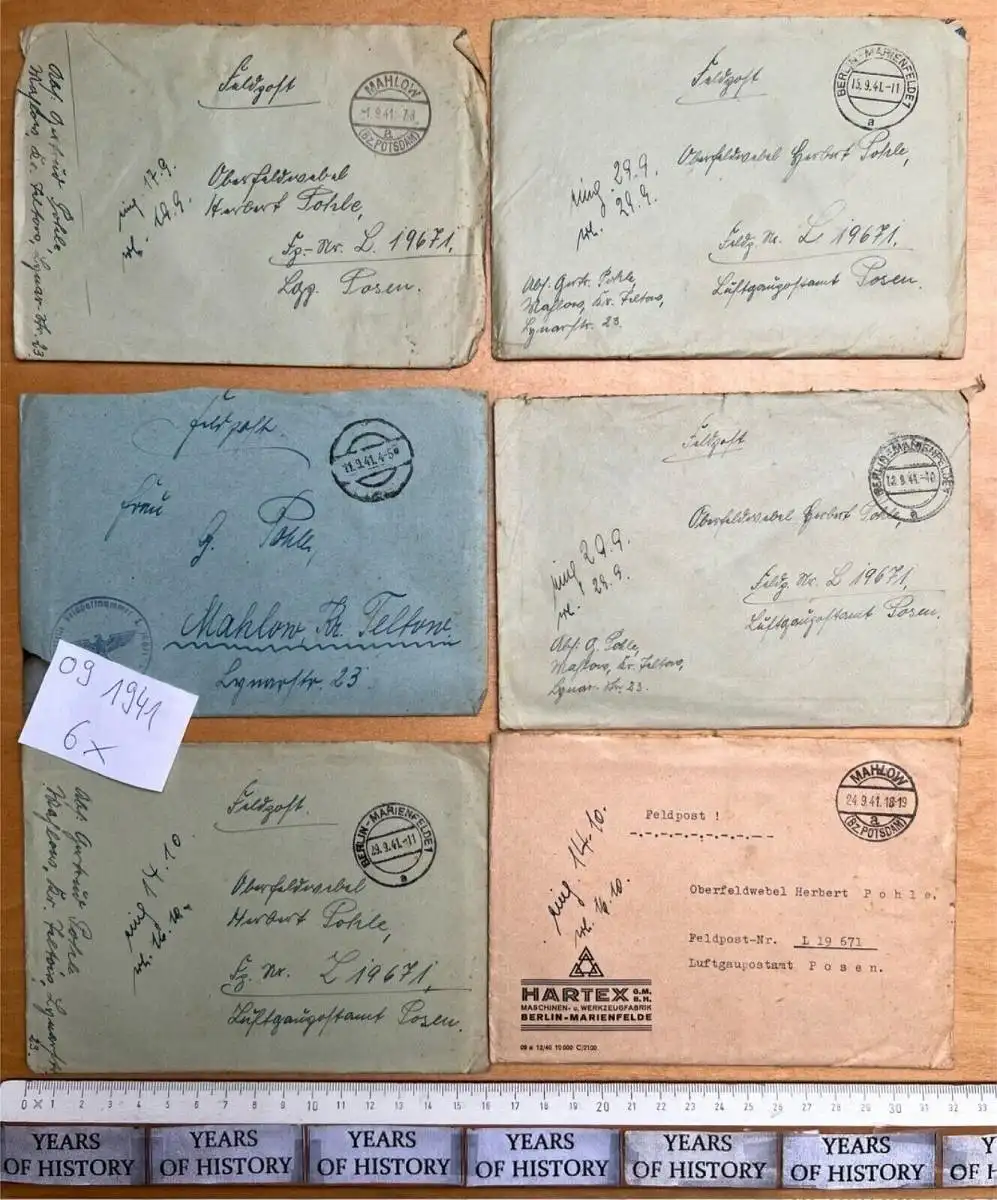 Feldpost
MAHLOW
-1.9.41.-7-8
a
(BZ.POTSDAM)
Oberfeldwebel
Herbert Pohle,
Fp.-Nr. L 19671,
Lgp. Posen.
17.9.
Abs. Gertrud Pohle,
Mahlow, Kr. Teltow, Lynar-Str. 23
Feldpost
BERLIN-MARIENFELDE 1
15.9.41.-11
a
Oberfeldwebel Herbert Pohle,
Feldp. Nr. L 19671,
Luftgaupostamt Posen.
eing. 29.9.
29.9.
Abs. Gertr. Pohle,
Mahlow, Kr. Teltow,
Lynarstr. 23.
Feldpost.
11.9.41.4-5
Frau
G. Pohle,
Mahlow, Kr. Teltow
Lynarstr. 23.
09 1941
6x
Feldpost
BERLIN-MARIENFELDE 1
.9.41.-10
a
Oberfeldwebel Herbert Pohle
Feldp. Nr. L 19671,
Luftgaupostamt Posen.
eing. 29.9.
29.9.
Abs. G. Pohle,
Mahlow, Kr. Teltow,
Lynar-Str. 23.
Feldpost.
BERLIN-MARIENFELDE 1
29.9.41.-11
a
Oberfeldwebel
Herbert Pohle,
Fp. Nr. L 19671,
Luftgaupostamt Posen.
Abs. Gertrud Pohle
Mahlow, Kr. Teltow, Lynarstr.
23.
Feldpost !
MAHLOW
24.9.41.18-19
a
(BZ.POTSDAM)
Oberfeldwebel Herbert P o h l e.
Feldpost-Nr. L 19 671
Luftgaupostamt P o s e n.
eing. 14.10.
16.10.
HARTEX G.M.B.H.
MASCHINEN- u. WERKZEUGFABRIK
BERLIN-MARIENFELDE
09 a 12/40 10 000 C/2100
0 x 1 2 3 4 5 6 7 8 9 10 11 12 13 14 15 16 17 18 19 20 21 22 23 24 25 26 27 28 29 30 31 32 33
YEARS OF HISTORY
YEARS OF HISTORY
YEARS OF HISTORY
YEARS OF HISTORY
YEARS OF HISTORY
YEARS OF HISTORY